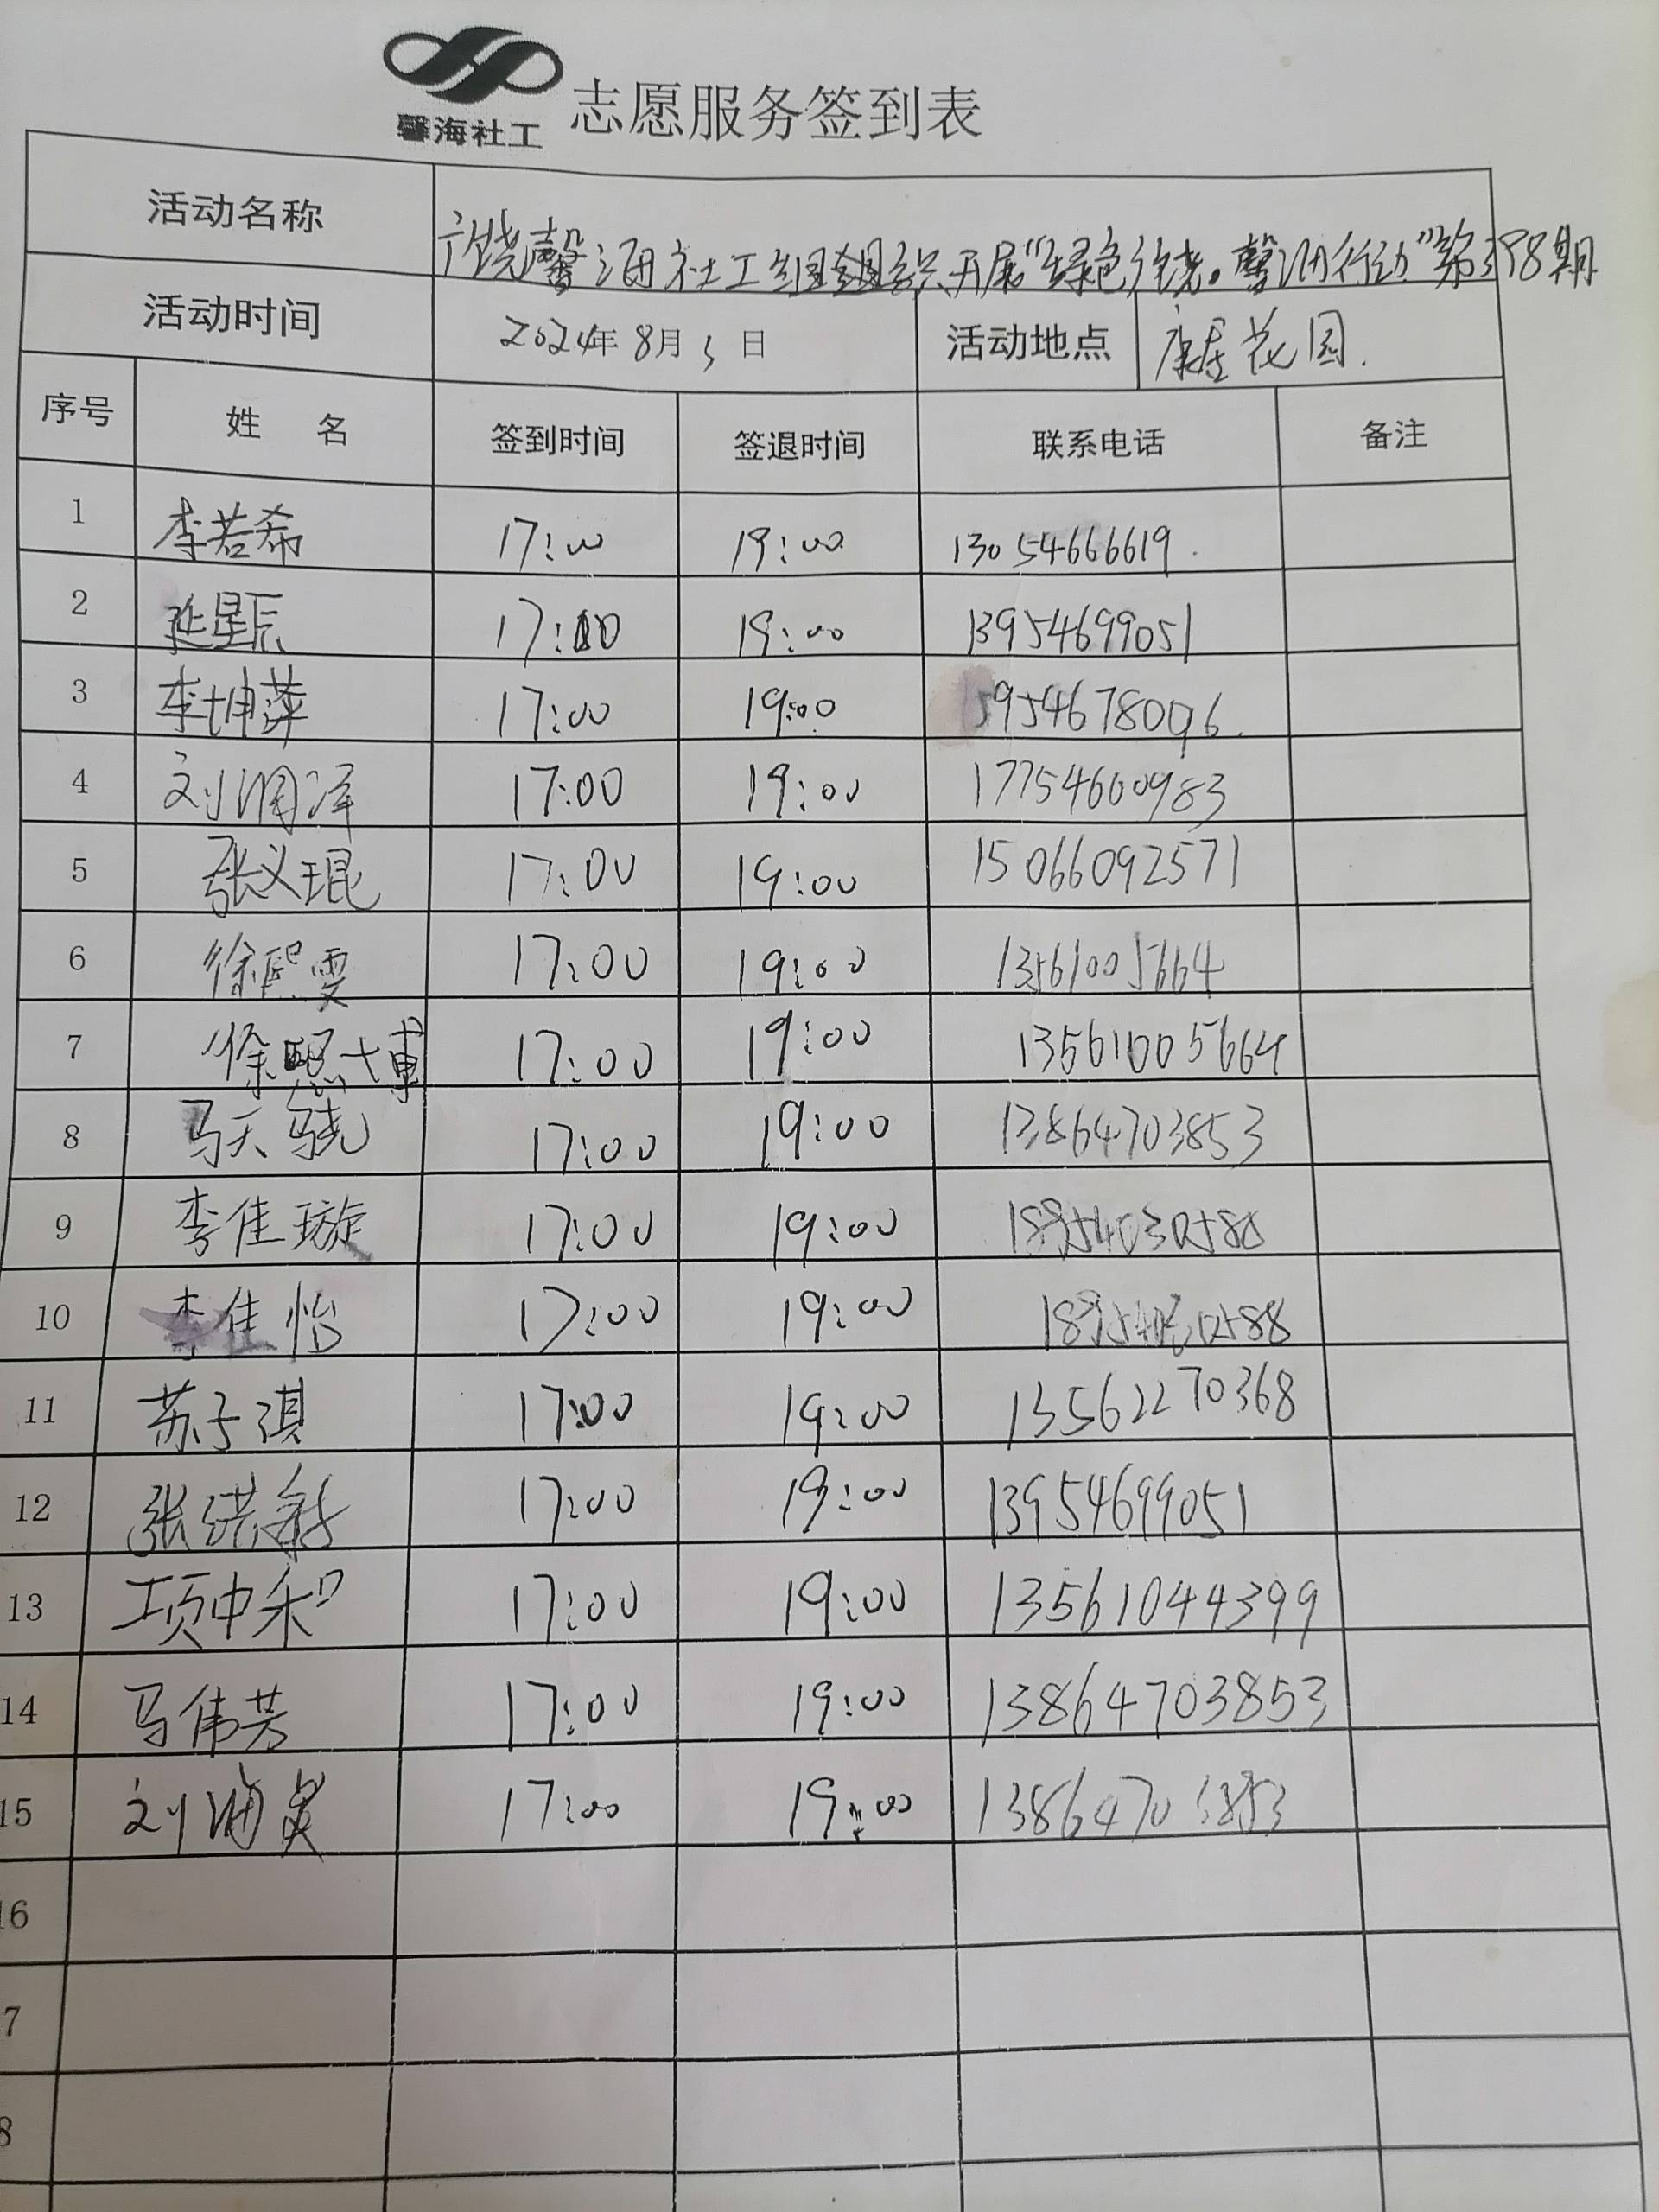 馨海社工 志愿服务签到表
活动名称 广饶馨海社工组织开展"绿色广饶。馨海行动"第398期
活动时间 2024年8月3日 活动地点 康居花园.
序号 姓 名 签到时间 签退时间 联系电话 备注
1 李若希 17:00 19:00 13054666619.
2 延星辰 17:00 19:00 13954699051
3 李坤萍 17:00 19:00 15954678096.
4 刘润泽 17:00 19:00 17754600983
5 张义琨 17:00 19:00 15066092571
6 徐熙雯 17:00 19:00 13561005664
7 徐熙博 17:00 19:00 13561005664
8 马天骁 17:00 19:00 13864703853
9 李佳璇 17:00 19:00
10 李佳怡 17:00 19:00
11 苏子淇 17:00 19:00 13562270368
12 张洪 17:00 19:00 13954699051
13 项中和 17:00 19:00 13561044399
14 马伟芳 17:00 19:00 13864703853
15 刘 17:00 19:00 13864703853
16
7
8